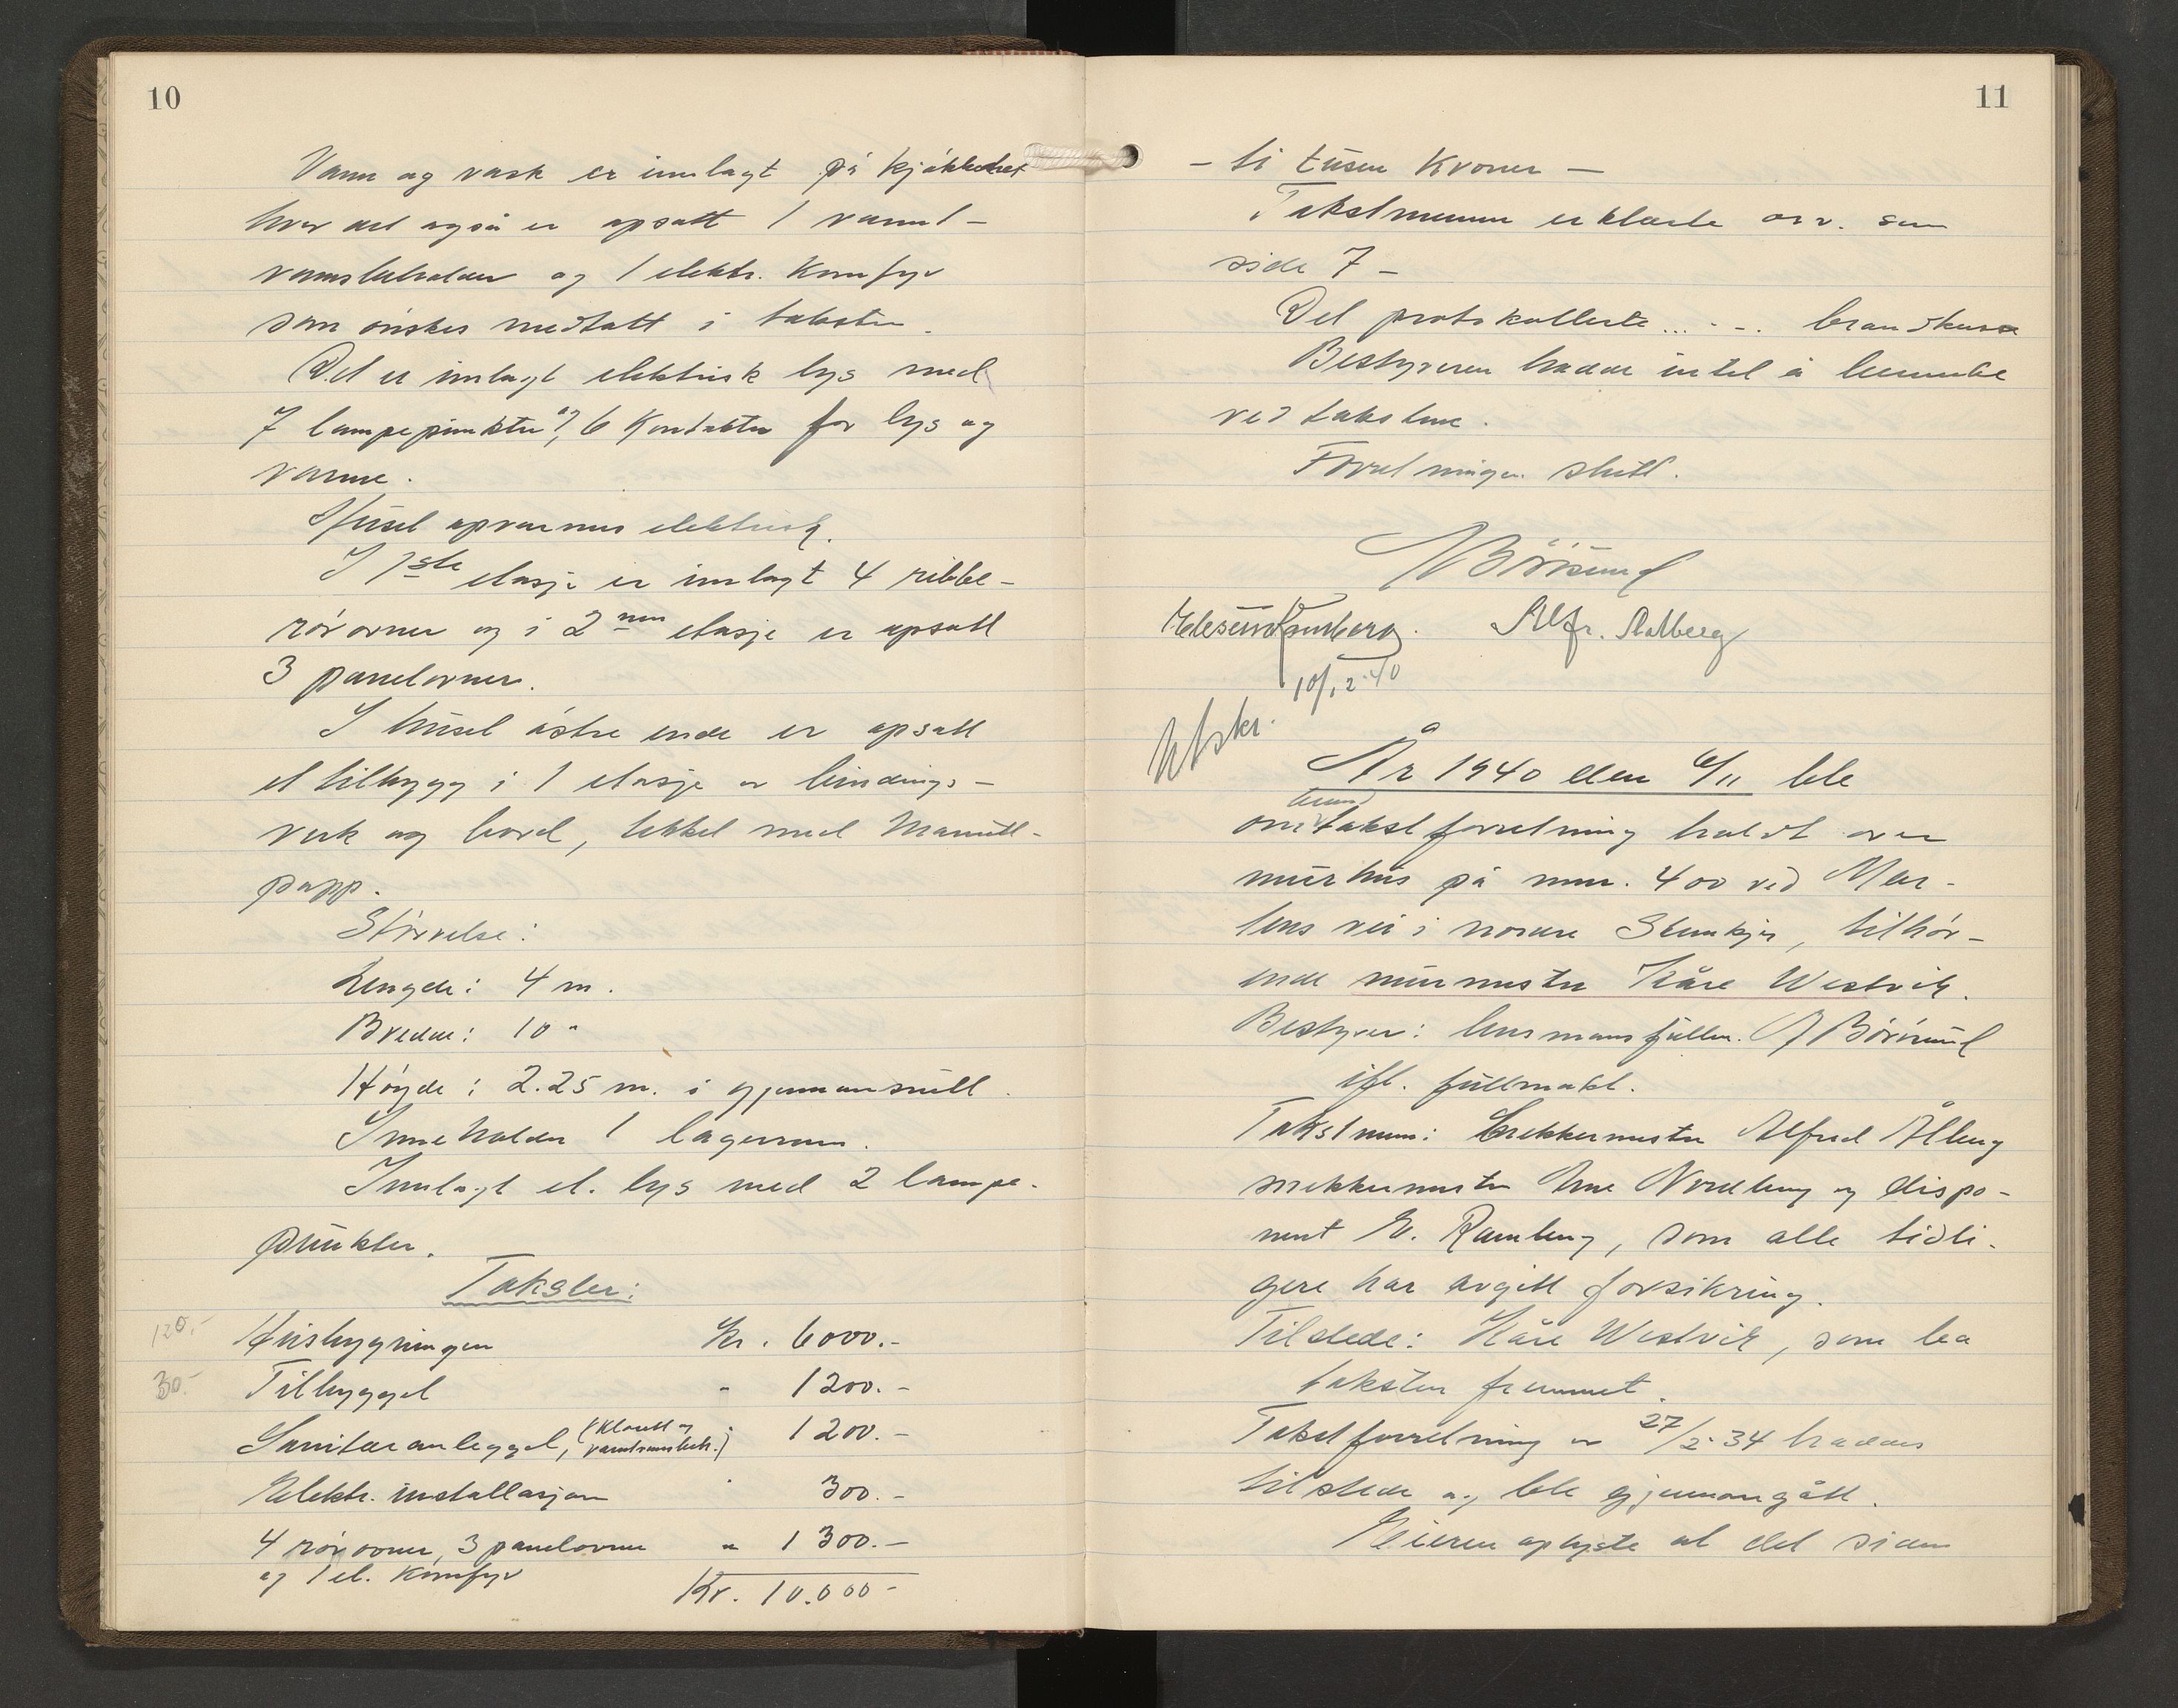 10
Vann og vask er innlagt på kjøkkenet
hvor det også er opsatt 1 varmt-
vannsbeholder og 1 elektr. Komfyr
som ønskes medtatt i taksten.
Det er innlagt elektrisk lys med
7 lampepunkter og 6 Kontakter for lys og
varme.
Huset opvarmes elektrisk.
I 1ste etasje er innlagt 4 ribbe-
rørovner og i 2nen etasje er opsatt
3 panelovner.
I huset østre ende er opsatt
et tilbygg i 1 etasje av bindings-
verk og bord, tekket med Manvill-
papp.
Størrelse:
Lengde: 4 m.
Bredde: 10 "
Høyde: 2.25 m. i gjennemsnitt.
Inneholder 1 lagerrum.
Innlagt el. lys med 2 lampe-
punkter.
Takster:
120.- Husbygningen Kr. 6000.-
30.- Tilbygget " 1200.-
Sanitæranlegget, (Klosett og varmtvannsbeh.) " 1200.-
Elektr. installasjon " 300.-
4 rørovner, 3 panelovner " 1300.-
og 1 el. Komfyr
Kr. 10.000-
11
- ti tusen Kroner -
Takstmenn erklærte osv. som
side 7 -
Det protokollerte ... - -. brandkasse
Bestyreren hadde intet å bemerke
ved takstene.
Forretningen slutt.
Børøsund
Eleseus Ramberg. Alfr. Aalberg
10/12-40
Utskr.
År 1940 den 6/11 ble
om brandtakstforretning holdt over
murhus på mnr. 400 ved Mar-
tens vei i nordre Steinkjer, tilhør-
ende murmester Kåre Westvik.
Bestyrer: lensmannsfullm. A Børøsund
ifl. fullmakt.
Takstmenn: Snekkermester Alfred Ålberg
snekkermester Arne Nordberg og dispo-
nent E. Ramberg, som alle tidli-
gere har avgitt forsikring.
Tilstede: Kåre Westvik, som ba
taksten fremmet.
Takstforretning av 27/2-34 hades
tilstede og ble gjennomgått.
Eieren oplyste at det siden